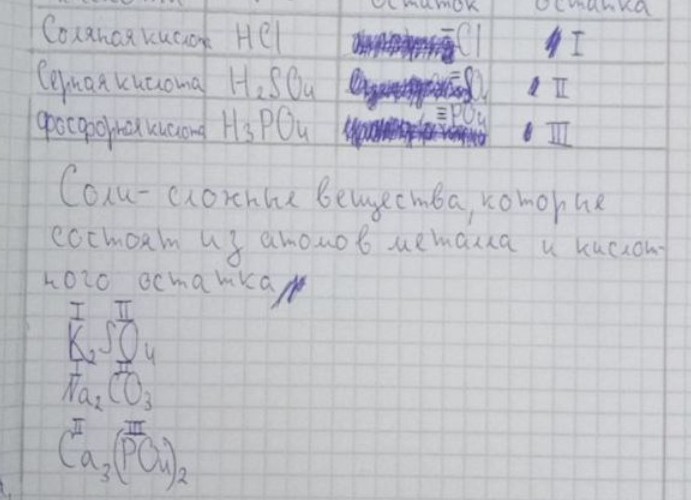 остаток остатка
Соляная кислота HCl –Cl I
Серная кислота H₂SO₄ =SO₄ II
Фосфорная кислота H₃PO₄ ≡PO₄ III
Соли - сложные вещества, которые
состоят из атомов металла и кислот-
ного остатка
I II
K₂SO₄
I II
Na₂CO₃
II III
Ca₃(PO₄)₂